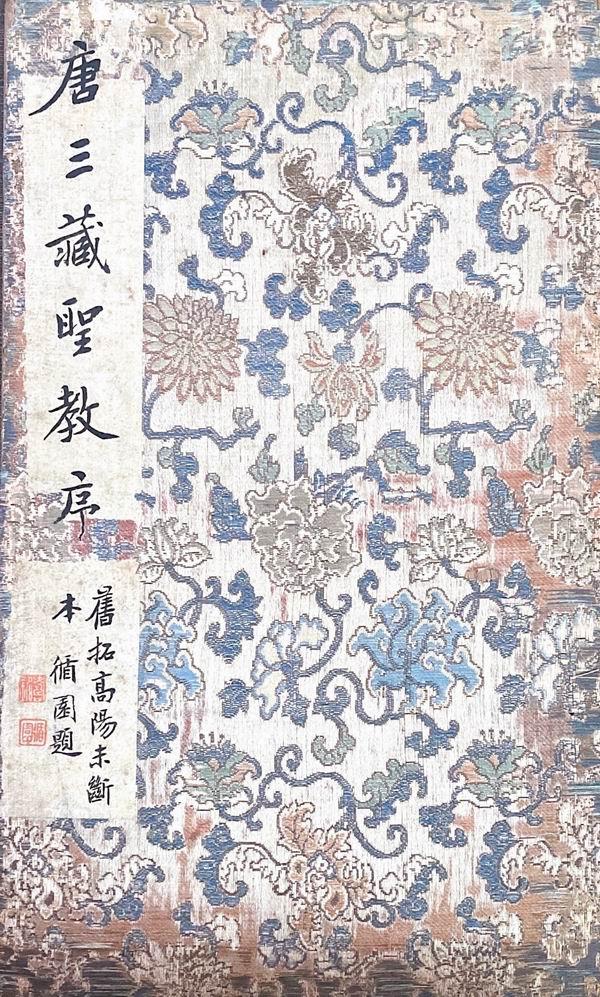 唐三藏聖教序
舊拓高陽未斷
本 循園題